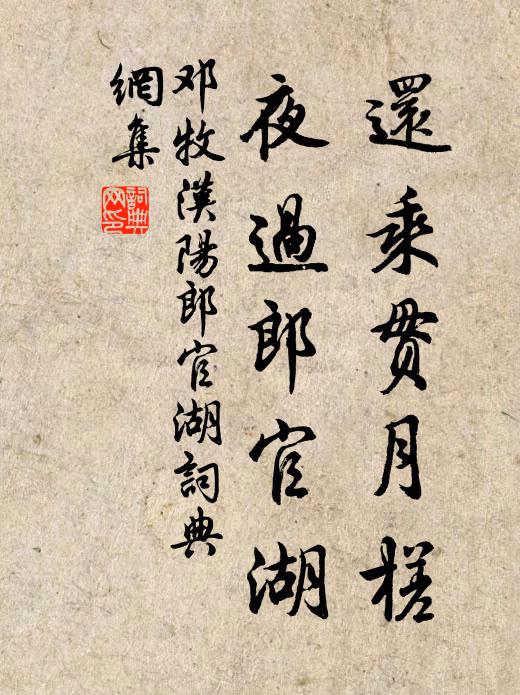 還乘貫月槎
夜過郎官湖
邓牧漢陽郎官湖詞典
網集
詞典網印